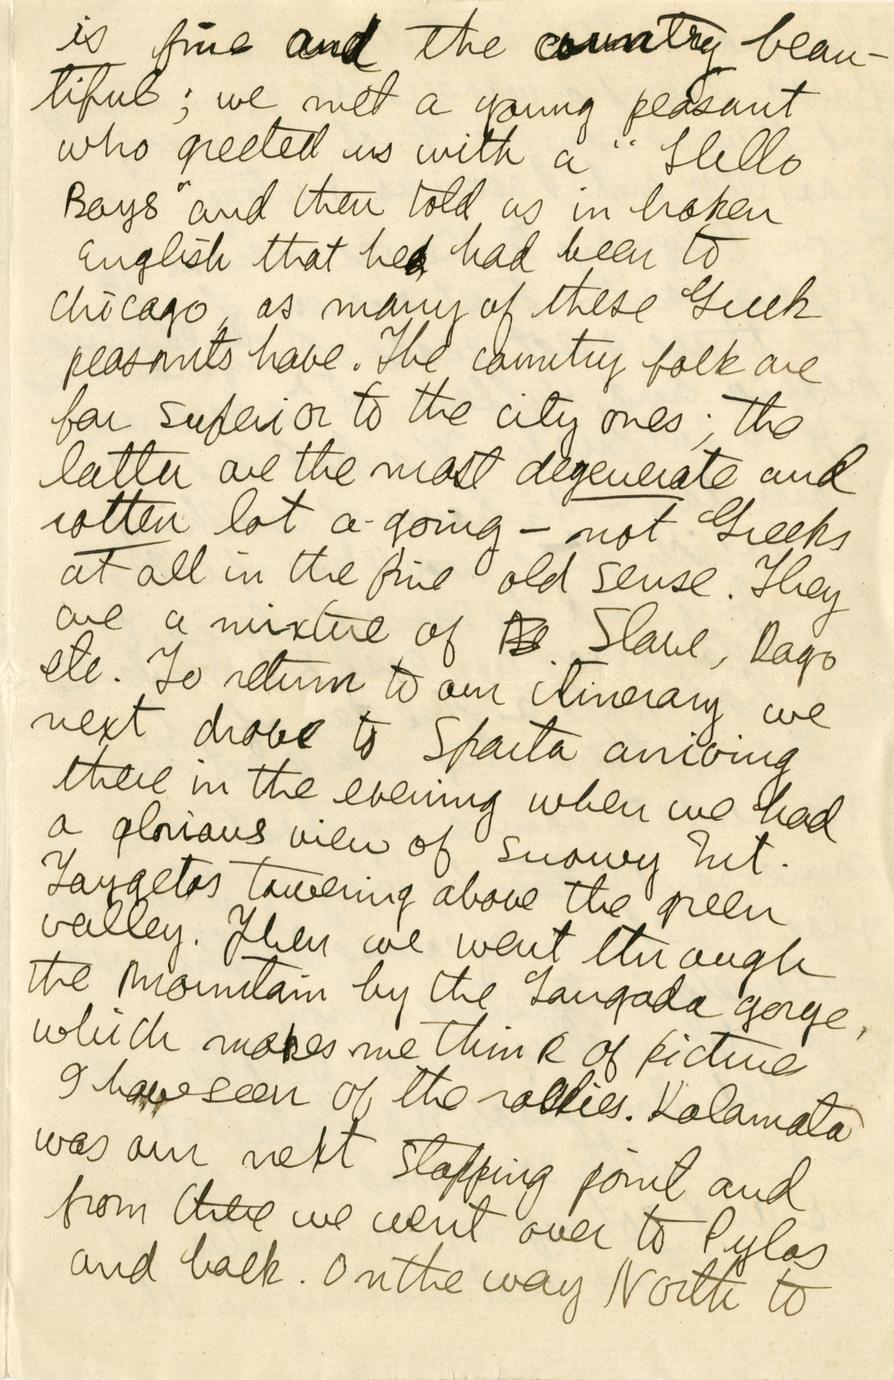 is fine and the country beau-
tiful; we met a young peasant
who greeted us with a "Hello
Boys" and then told us in broken
English that he had been to
Chicago, as many of these Greek
peasants have. The country folk are
far superior to the city ones; the
latter are the most degenerate and
rotten lot a-going - not Greeks
at all in the fine old sense. They
are a mixture of Slave, Dago
etc. To return to our itinerary we
next drove to Sparta arriving
there in the evening when we had
a glorious view of snowy Mt.
Taygetos towering above the green
valley. Then we went through
the mountain by the Langada gorge,
which makes me think of picture
I have seen of the rockies. Kalamata
was our next stopping point and
from there we went over to Pylos
and back. On the way North to